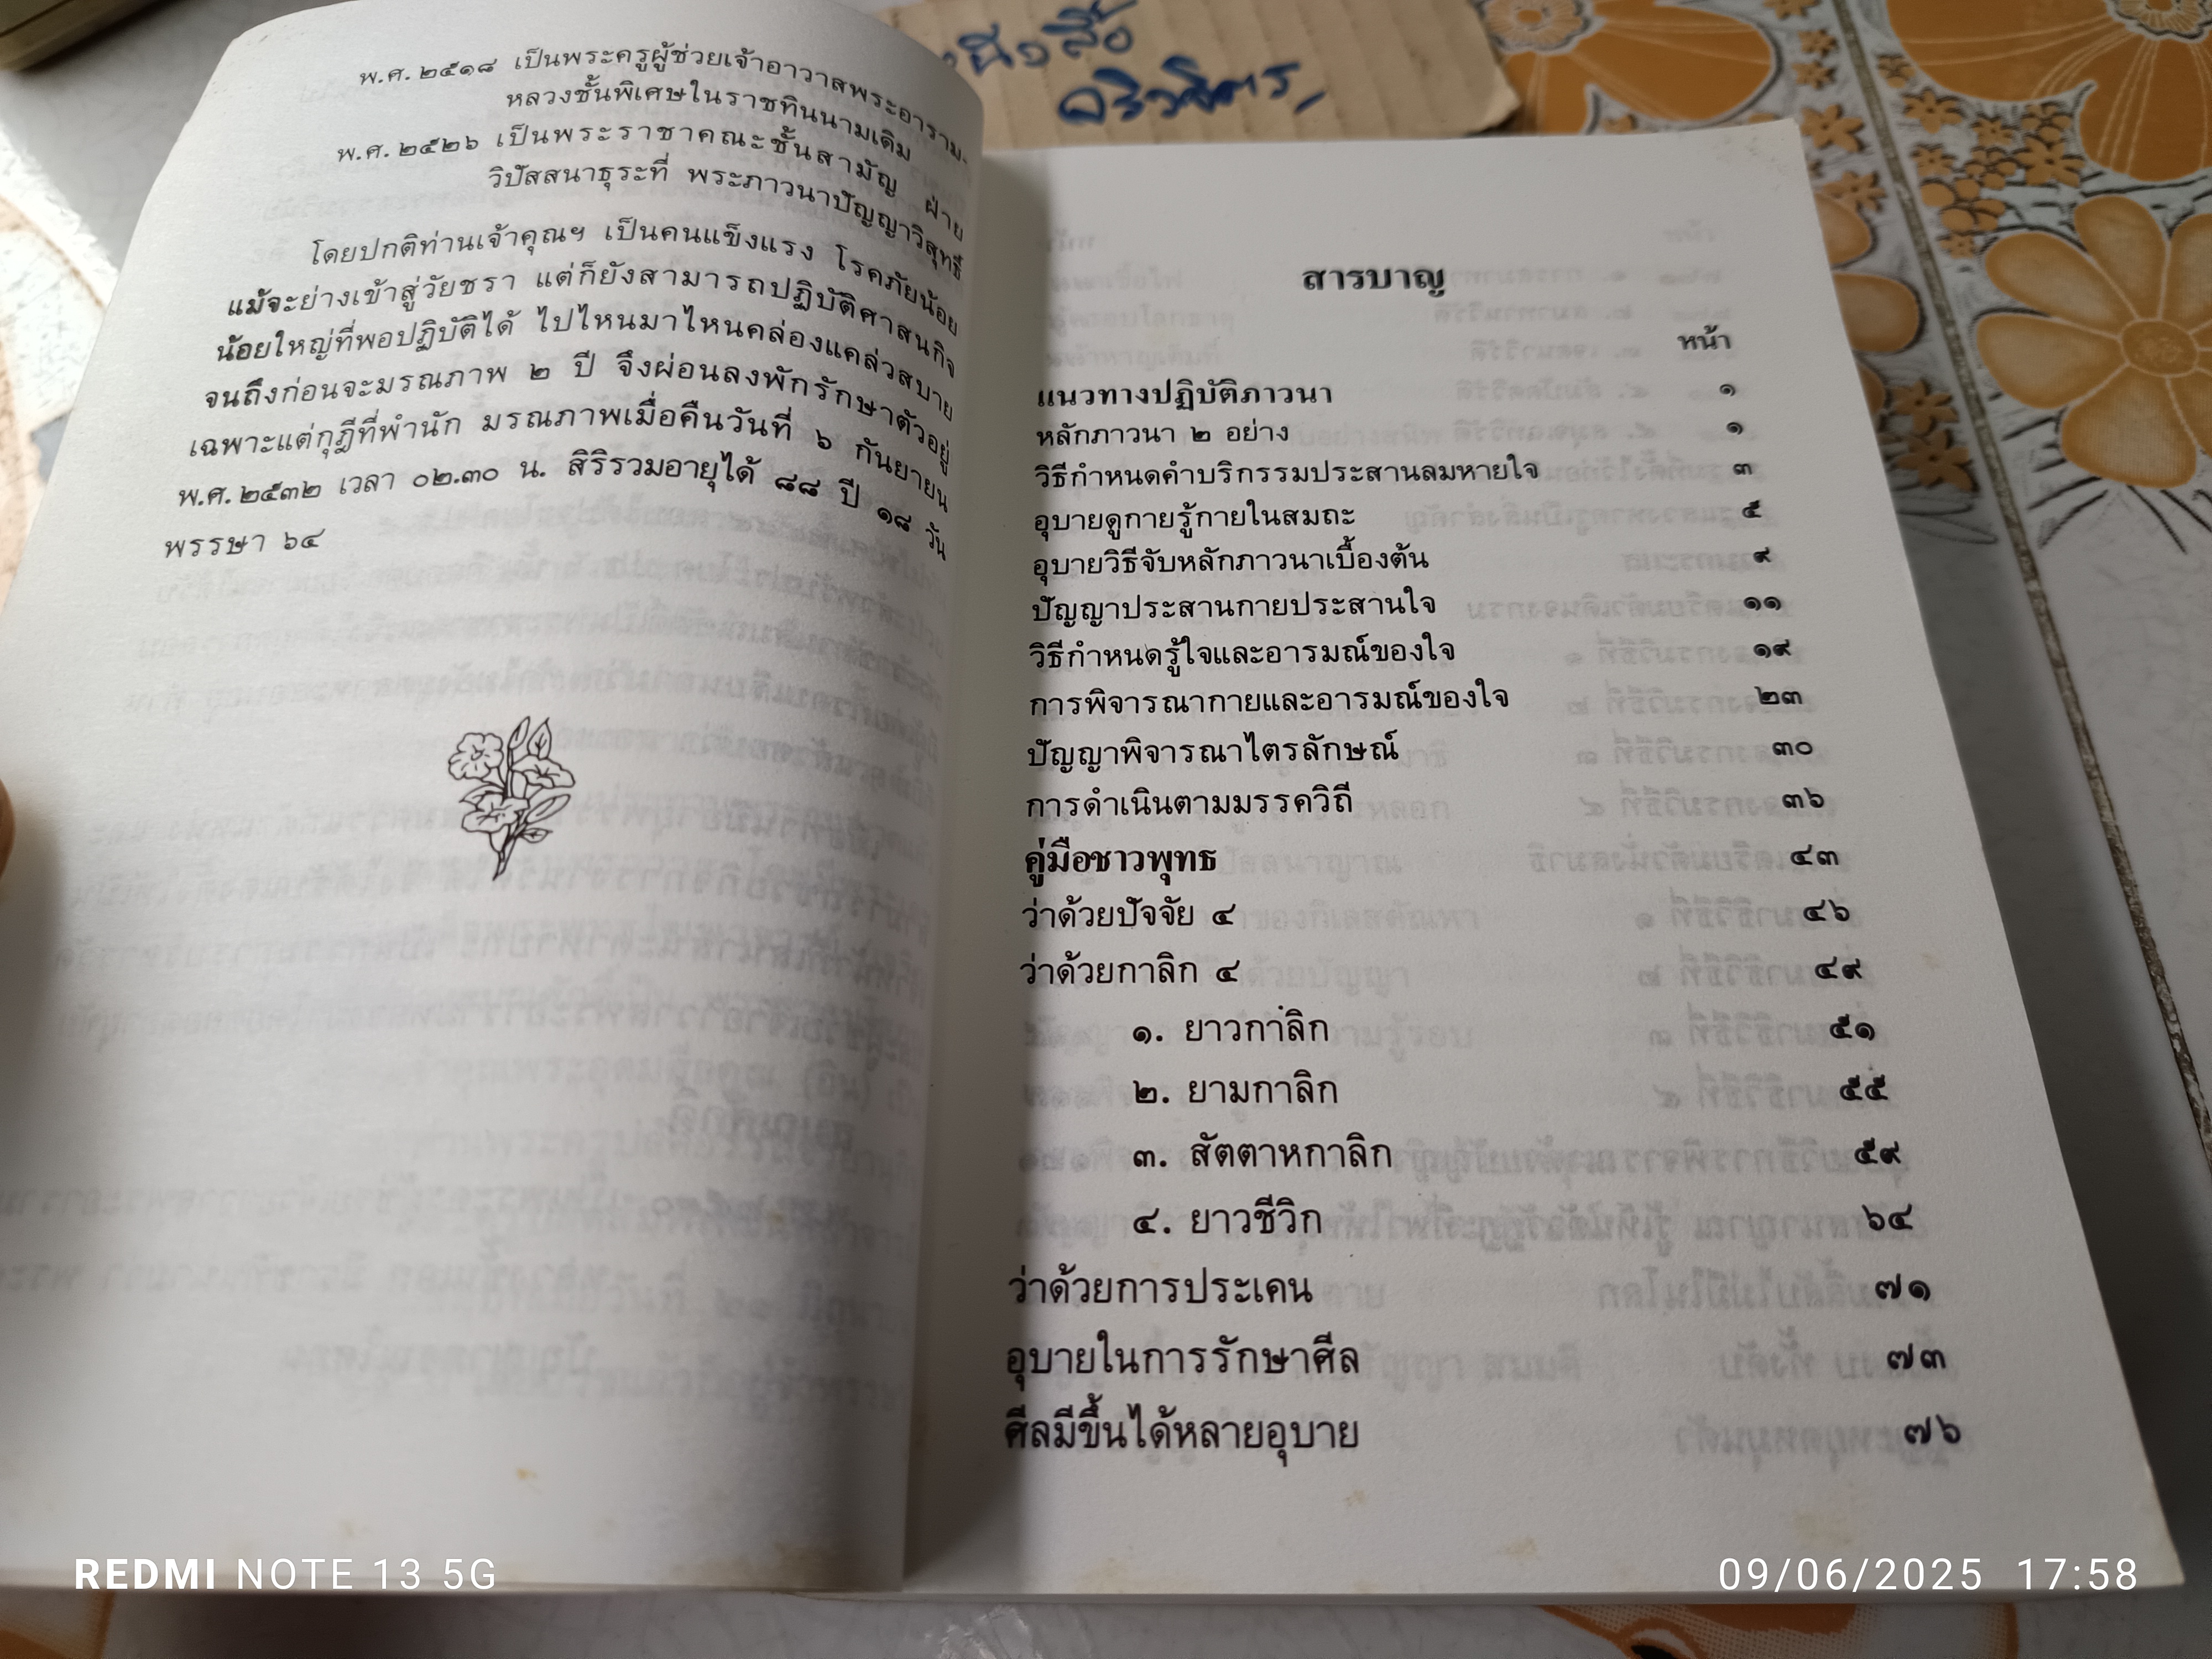 พ.ศ. ๒๕๑๘ เป็นพระครูผู้ช่วยเจ้าอาวาสพระอาราม-
หลวงชั้นพิเศษในราชทินนามเดิม
พ.ศ. ๒๕๒๖ เป็นพระราชาคณะชั้นสามัญ ฝ่าย
วิปัสสนาธุระที่ พระภาวนาปัญญาวิสุทธิ์
โดยปกติท่านเจ้าคุณฯ เป็นคนแข็งแรง โรคภัยน้อย
แม้จะย่างเข้าสู่วัยชรา แต่ก็ยังสามารถปฏิบัติศาสนกิจ
น้อยใหญ่ที่พอปฏิบัติได้ ไปไหนมาไหนคล่องแคล่วสบาย
จนถึงก่อนจะมรณภาพ ๒ ปี จึงผ่อนลงพักรักษาตัวอยู่
เฉพาะแต่กุฏีที่พำนัก มรณภาพเมื่อคืนวันที่ ๖ กันยายน
พ.ศ. ๒๕๓๒ เวลา ๐๒.๓๐ น. สิริรวมอายุได้ ๘๘ ปี ๑๘ วัน
พรรษา ๖๔
สารบาญ
หน้า
แนวทางปฏิบัติภาวนา ๑
หลักภาวนา ๒ อย่าง ๑
วิธีกำหนดคำบริกรรมประสานลมหายใจ ๓
อุบายดูกายรู้กายในสมถะ ๕
อุบายวิธีจับหลักภาวนาเบื้องต้น ๙
ปัญญาประสานกายประสานใจ ๑๑
วิธีกำหนดรู้ใจและอารมณ์ของใจ ๑๙
การพิจารณากายและอารมณ์ของใจ ๒๓
ปัญญาพิจารณาไตรลักษณ์ ๓๐
การดำเนินตามมรรควิถี ๓๖
คู่มือชาวพุทธ ๔๓
ว่าด้วยปัจจัย ๔ ๔๖
ว่าด้วยกาลิก ๔ ๔๙
๑. ยาวกาลิก ๕๑
๒. ยามกาลิก ๕๕
๓. สัตตาหกาลิก ๕๙
๔. ยาวชีวิก ๖๔
ว่าด้วยการประเคน ๗๑
อุบายในการรักษาศีล ๗๓
ศีลมีขึ้นได้หลายอุบาย ๗๖
REDMI NOTE 13 5G
09/06/2025 17:58